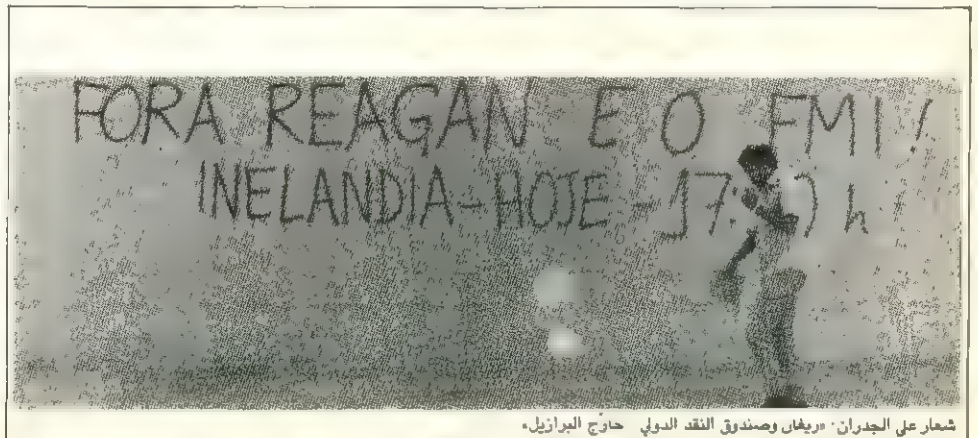 FORA REAGAN E O FMI!
INELANDIA-HOJE-17:
شعار على الجدران: «ريغان وصندوق النقد الدولي خارج البرازيل»